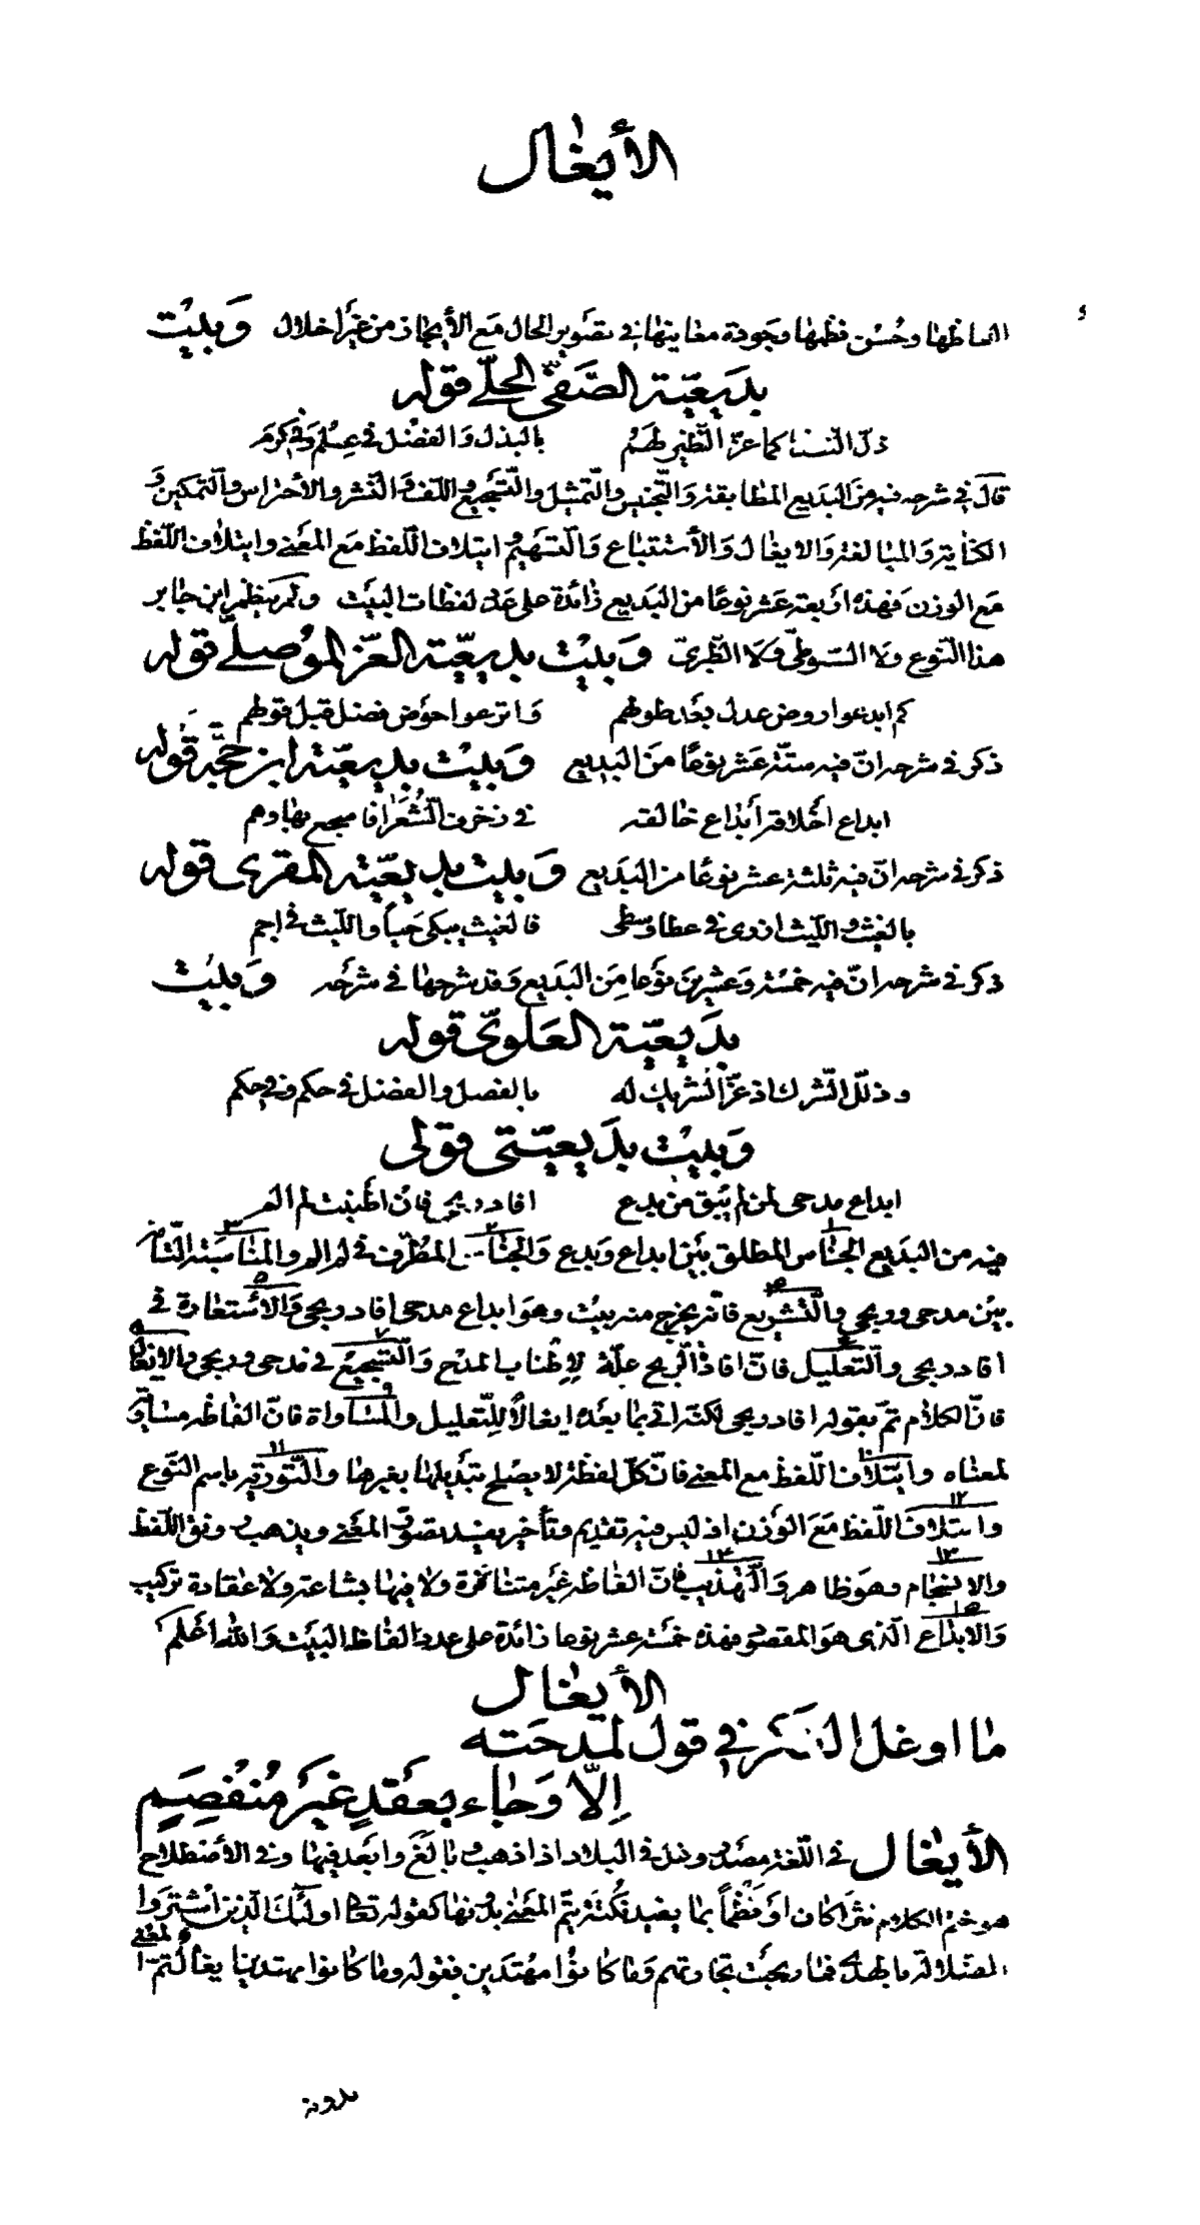 الأيغال
الفاظها وحُسْن نظمها وجودة معانيها في تصوير الحال مع الأيجاز من غير اخلال وَبيْت
بديعيّة الصّفيّ الحلّي قوله
ذلّ النّضار كما عزّ النّظير لهم بالبذل والفضل في علم وفي كرم
قال في شرحه فيه من البديع المطابقة والتّجنيس والتّمثيل والتّسجيع واللّف والنّشر والأحتراس والتّمكين و
الكناية والمبالغة والايغال والأستتباع والتّسهيم وايتلاف اللّفظ مع المعنى وايتلاف اللّفظ
مع الوزن فهذه اربعة عشر نوعًا من البديع زائدة على عدد لفظات البيت ولم ينظم ابن جابر
هذا النّوع ولا السّيوطيّ ولا الطّبريّ وبيْت بديعيّة العزّ الموصليّ قوله
كم ابدعوا روض عدل بعد طولهم واترعوا حوض فضل قبل قولهم
ذكر في شرحه انّ فيه ستّة عشر نوعًا من البديع وبيْت بديعيّة ابن حجّة قوله
ابداع أخلاقه أبداع خالقه في زخرف الشّعرا فاسجع بها وهم
ذكر في شرحه انّ فيه ثلثة عشر نوعًا من البديع وبيت بديعيّة المقرى قوله
بالغيث والليث ازرى في عطا وسطى فالغيث يبكى حياً والليث في اجم
ذكر في شرحه انّ فيه خمسة وعشرين نوعا من البديع وقد شرحها في شرحه وبيْت
بديعيّة العلويّ قوله
وذلّل الشّرك اذ عزّ الشّريك له بالفصل والفضل في حكم وفي حكم
وبيْت بديعيّتى قولى
ابداع مدحى لمن لم يُبق من بدع افاد ربحى فان اطنبت لم الم
فيه من البديع الجناس المطلق بين ابداع وبدع والجناس المطرّف في لم الم والمناسبة التّامّة
بين مدحى وربحى والتّشريع فانّه يخرج منه بيت وهو ابداع مدحى افاد ربحى والاستعارة في
افاد ربحى والتّعليل فانّ افادة الرّبح علّة لاطناب المدح والتّسجيع في مدحى وربحى والايغال
فانّ الكلام تمّ بقوله افاد ربحى لكنّه اتى بما بعده ايغالاً للتّعليل والمساواة فانّ الفاظه مساوية
لمعناه وايتلاف اللّفظ مع المعنى فانّ كلّ لفظة لا يصلح تبديلها بغيرها والتّورية باسم النّوع
وايتلاف اللّفظ مع الوزن اذ ليس فيه تقديم وتأخير يفسد تصوّر المعنى ويذهب رونق اللّفظ
والانسجام وهو ظاهر والتّهذيب فانّ الفاظه غير متنافرة ولا فيها بشاعة ولا عقادة تركيب
والابداع الّذى هو المقصود فهذه خمسة عشر نوعا زائدة على عدد الفاظ البيت والله اعلم
الأيغال
ما اوغل الفكر في قول لمدحته
اِلّا وَجاء بعَقدٍ غيرَ مُنفَصِمِ
الأيغال في اللّغة مصدر وغل في البلاد اذا ذهب بالغ وابعد فيها وفي الأصطلاح
هو ختم الكلام نثراً كان او نظماً بما يفيد نكتة يتمّ المعنى بدونها كقوله تعالى اولئك الّذين اشتروا
الضّلالة بالهدى فما ربحت تجارتهم وما كانوا مهتدين فقوله وما كانوا مهتدين ايغال لتمّ المعنى
بدونه